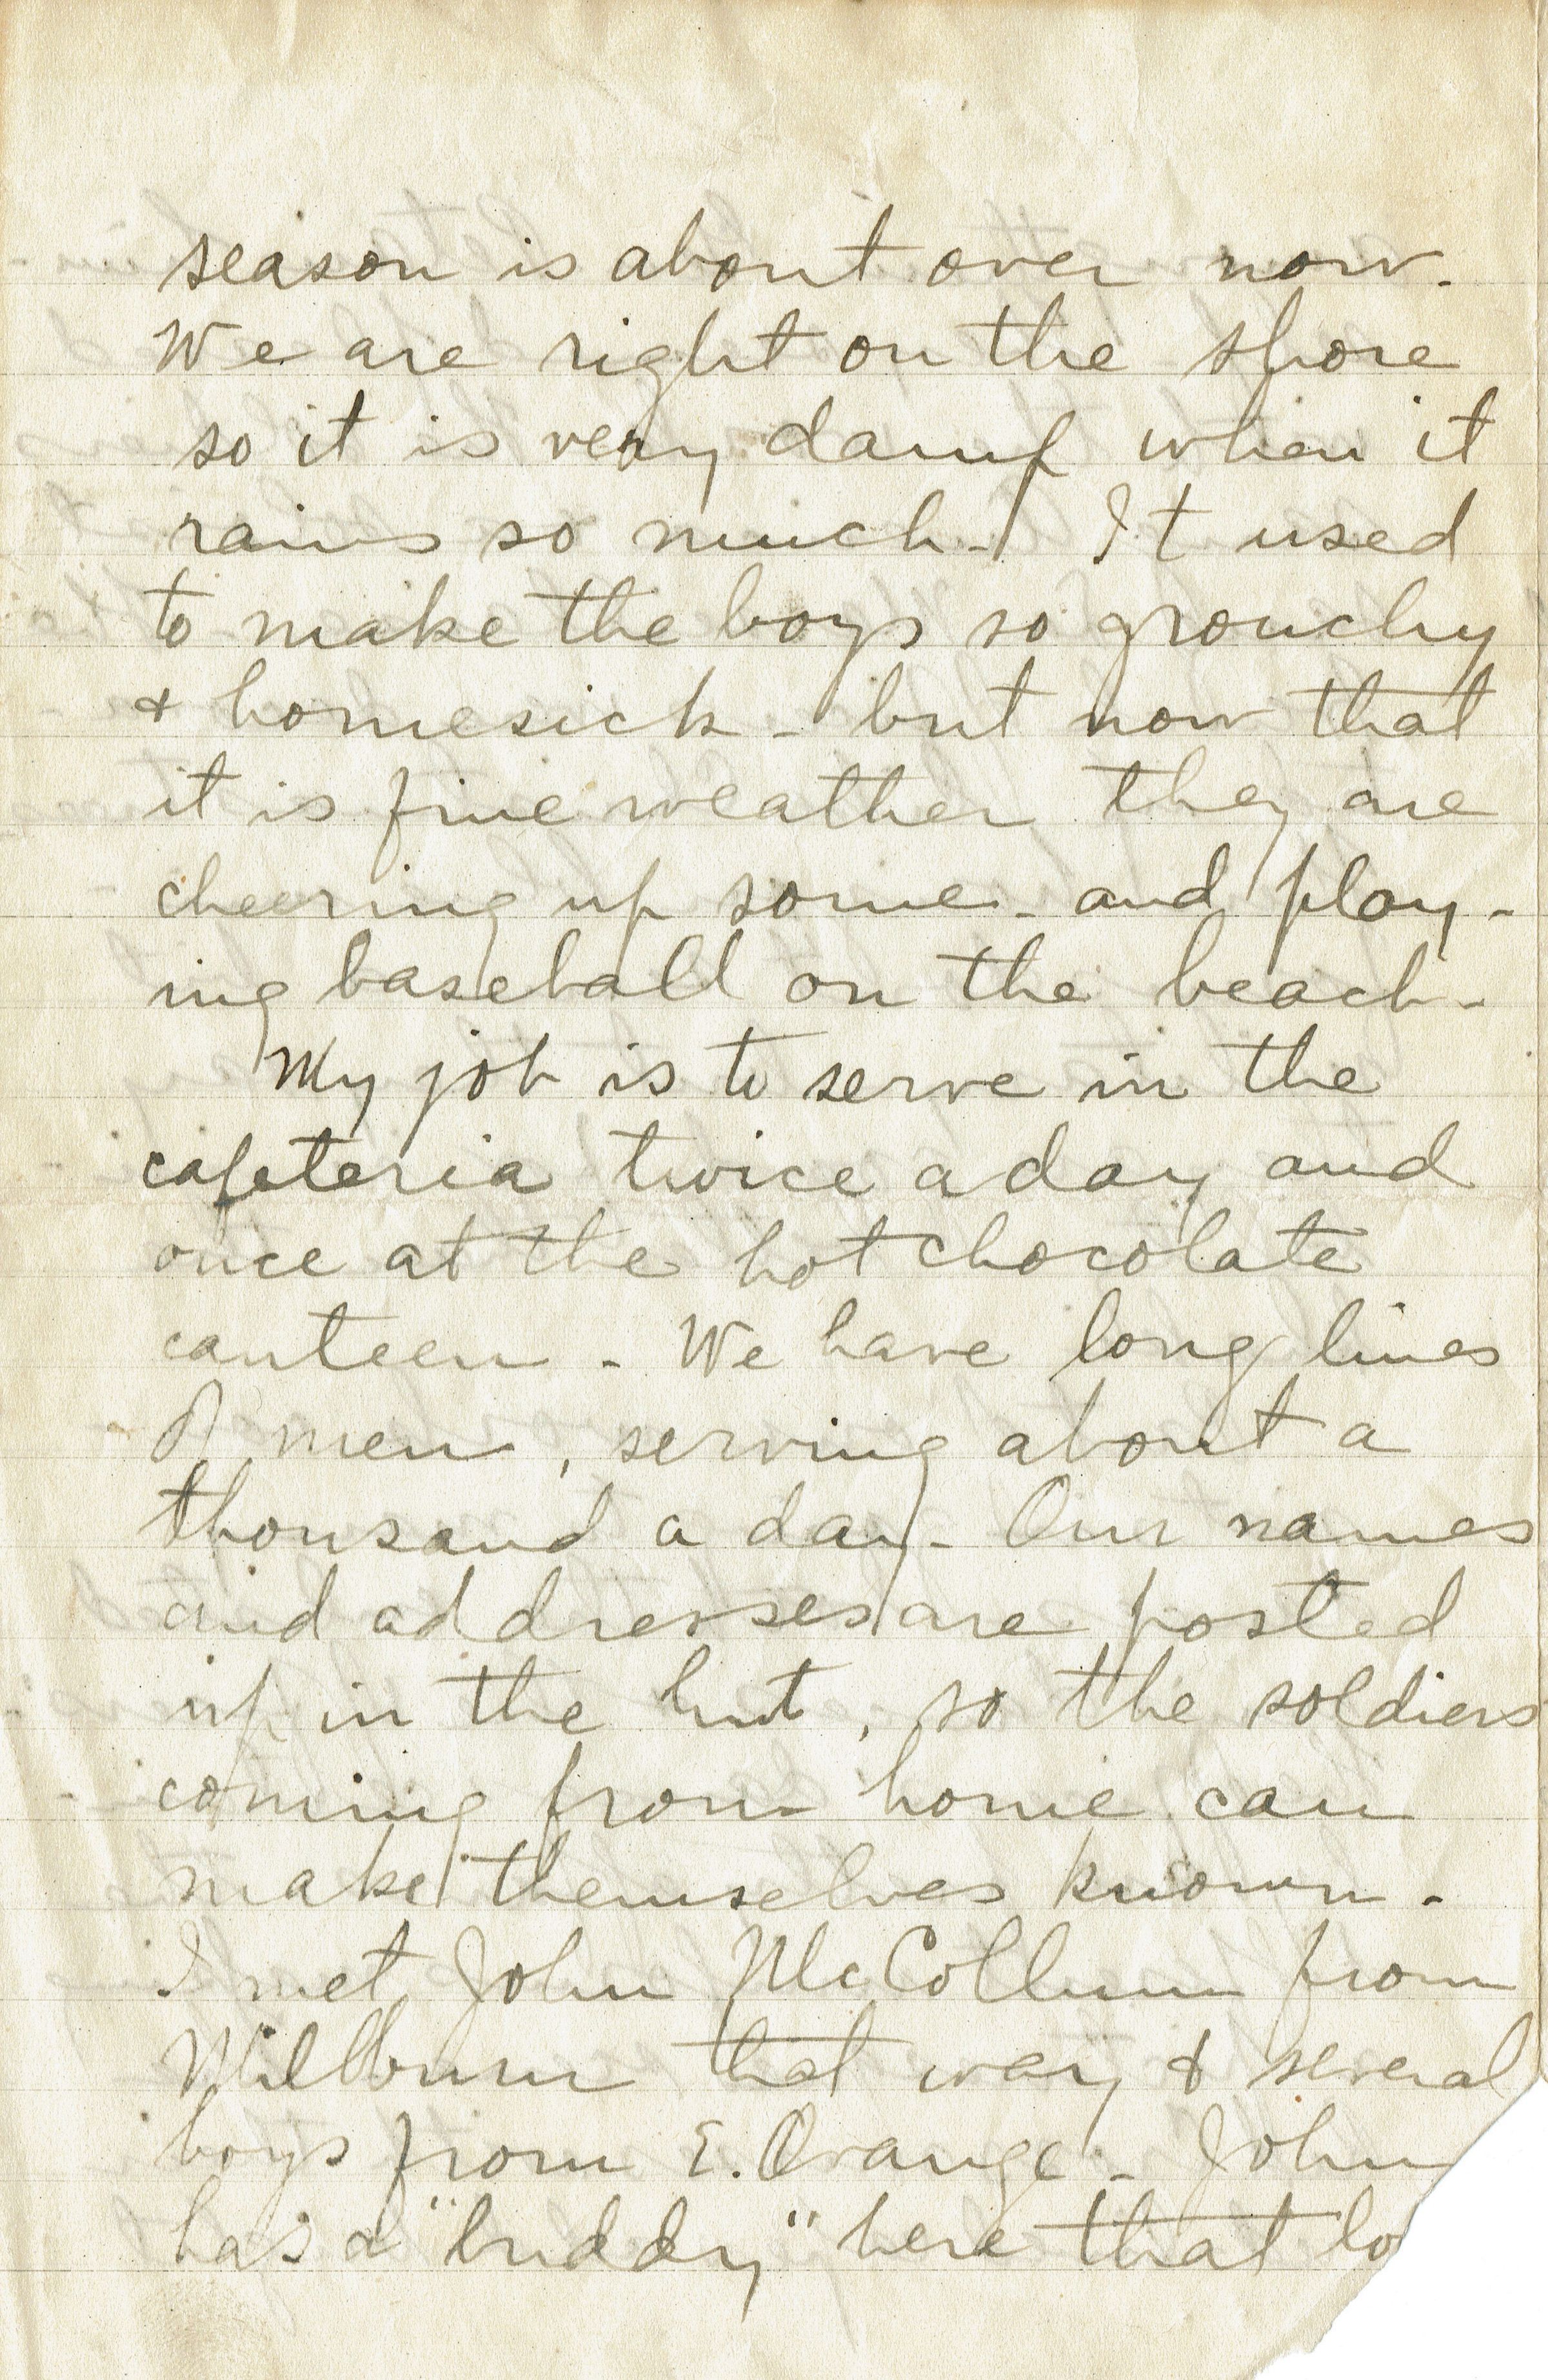 season is about over now.
We are right on the shore
so it is very damp when it
rains so much - It used
to make the boys so grouchy
& homesick - but now that
it is fine weather they are
cheering up some - and play-
ing baseball on the beach -
My job is to serve in the
cafeteria twice a day and
once at the hot chocolate
canteen - We have long lines
of men, serving about a
thousand a day - Our names
and addresses are posted
up in the hut, so the soldiers
coming from home can
make themselves known -
I met John McCollum from
Millburn that way & several
boys from E. Orange - John
has a "buddy" here that